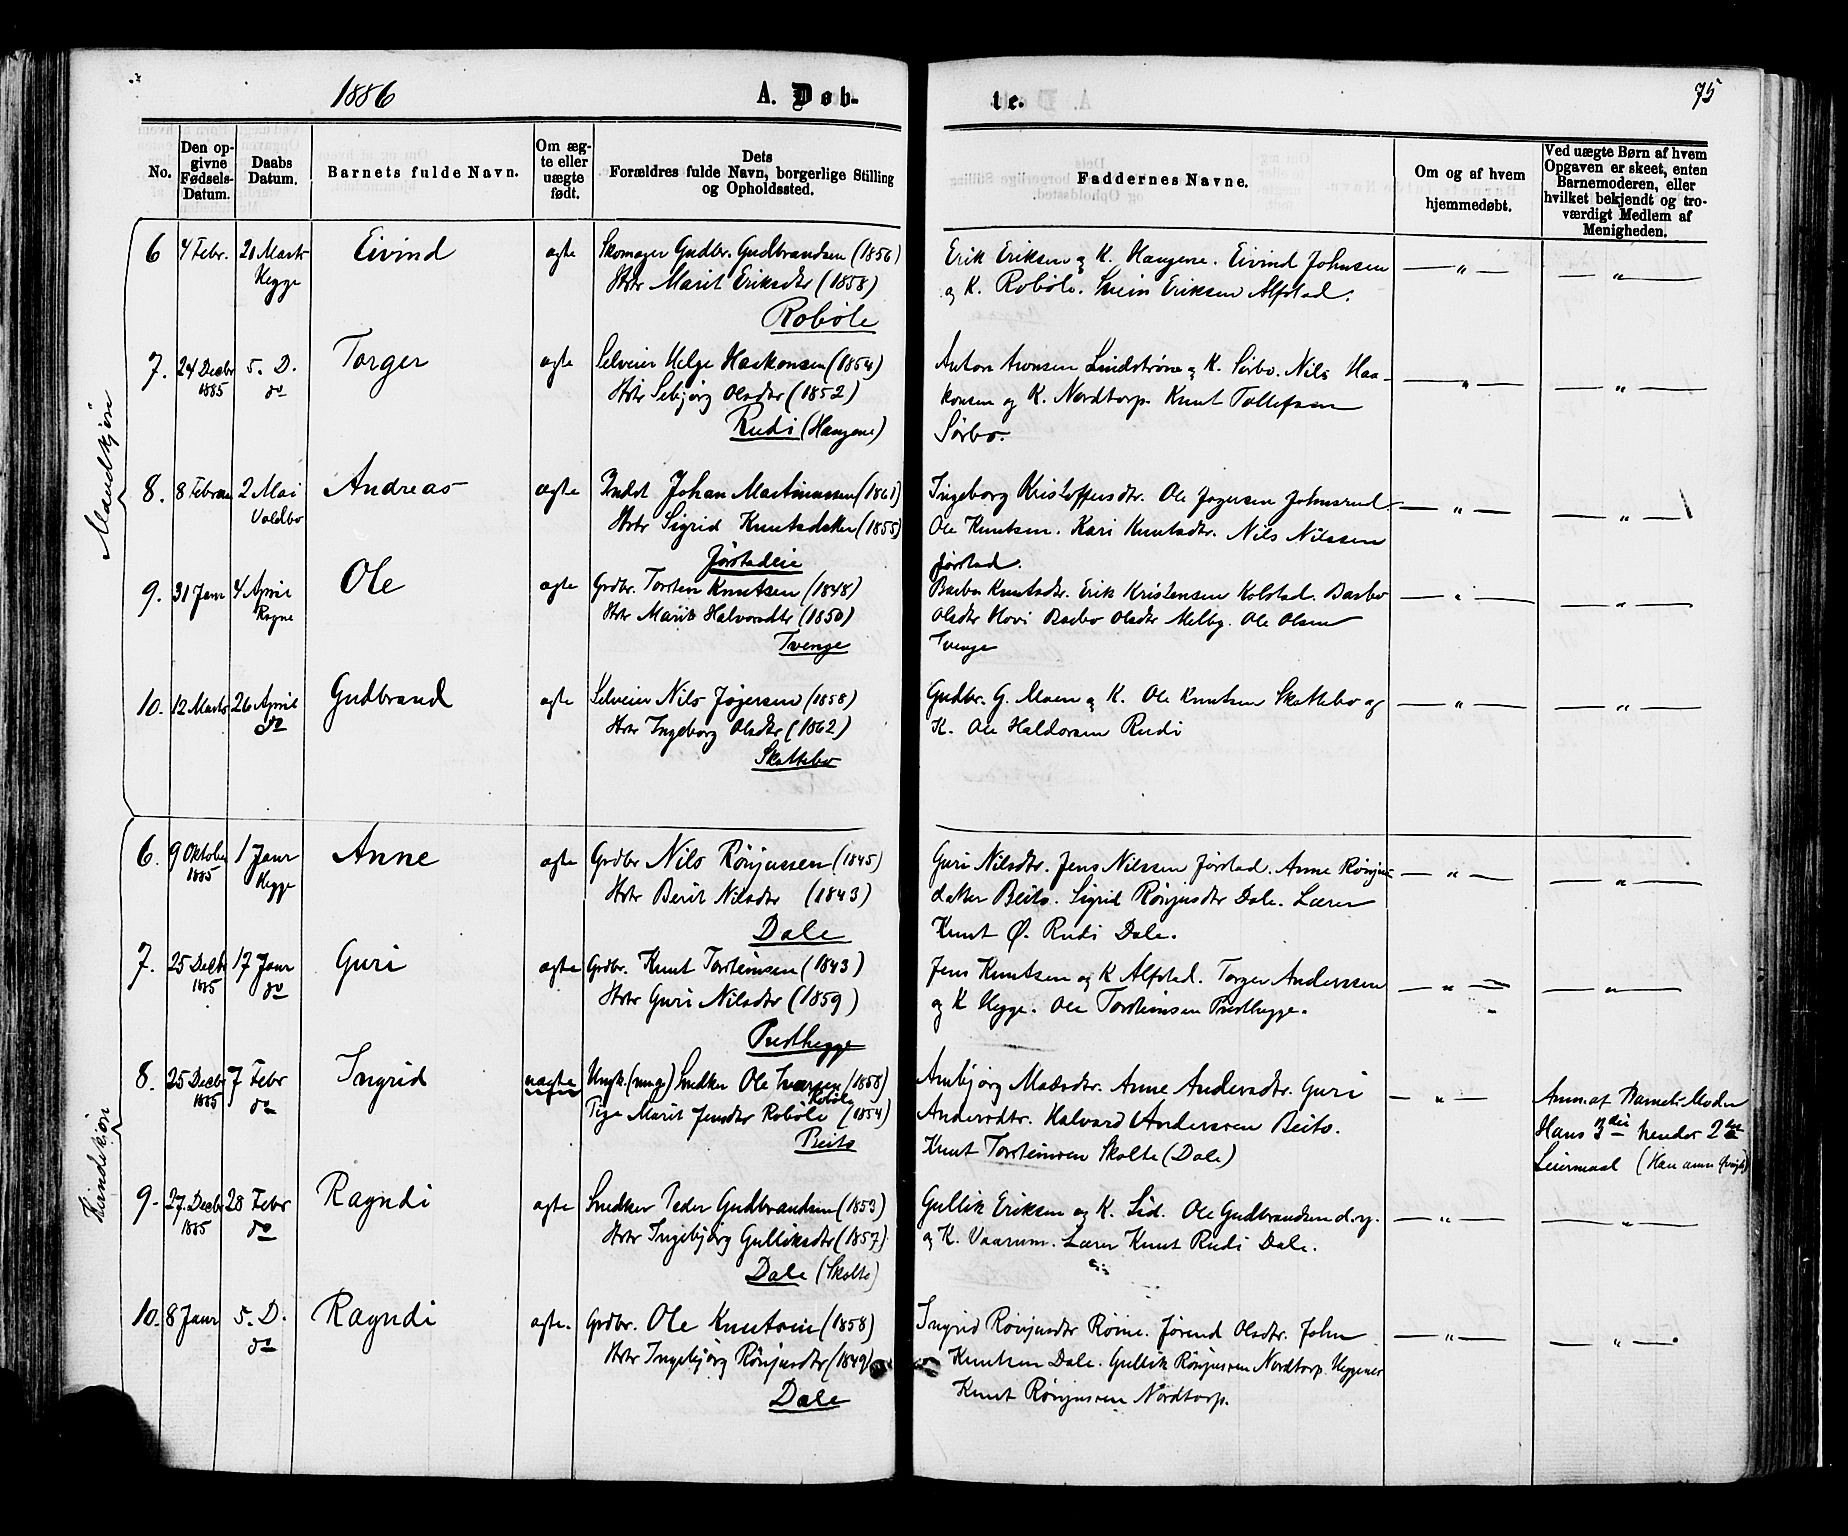 1886
A. Døb-
te.
75
No.
Den op-
givne
Fødsels-
Datum.
Daabs
Datum.
Barnets fulde Navn.
Om æg-
te eller
uægte
født.
Dets
Forældres fulde Navn, borgerlige Stilling
og Opholdssted.
Faddernes Navne.
Om og af hvem
hjemmedøbt.
Ved uægte Børn af hvem
Opgaven er skeet, enten
Barnemoderen, eller
hvilket bekjendt og tro-
værdigt Medlem af
Menigheden.
Mandkjøn
6 4 Febr. 21 Marts Eivind ægte Skomager Gudbr. Gudbrandsen (1856) Erik Eriksen og K. Haugene. Eivind Johnsen — " — — " —
Hegge Hstr Marit Eriksdtr (1858) og K. Robøle. Svein Eriksen Alfstad.
Robøle
7. 24 Decbr 5. D. Torger ægte Selveier Helge Haakonsen (1854) Anton Aronsen Lindstrøm og K. Sørbo. Nils Haa- — " — — " —
1885 do Hstr Sebjørg Olsdtr (1852) konsen og K. Nordtorp. Knut Tollefsen
Rudi (Haugene) Sørbo.
8. 8 Februar 2 Mai Andreas ægte Indst Johan Martinussen (1861) Ingeborg Kristoffersdtr. Ole Jøgersen Johnsrud — " — — " —
Voldbo Hstr Sigrid Knutsdatter (1855) Ole Knutsen. Kari Knutsdtr. Nils Nilssen
Jørstadeie Jørstad.
9. 31 Janr 4 April Ole ægte Grdbr. Torsten Knutsen (1848) Barbo Knutsdtr. Erik Kristensen Kolstad. Barbo — " — — " —
Rogne Hstr Marit Halvorsdtr (1850) Olsdtr Hovi Barbo Olsdtr Melby. Ole Olsen
Tvenge Tvenge
10. 12 Marts 26 April Gudbrand ægte Selveier Nils Jøgersen (1858) Gudbr. G. Moen og K. Ole Knutsen Skattebo og — " — — " —
do Hstr Ingeborg Olsdtr (1862) K. Ole Haldorsen Rudi
Skattebo
Kvindekjøn
6. 9 Oktober 1 Janr Anne ægte Grdbr Nils Rønjussen (1845) Guri Nilsdtr. Jens Nilssen Jørstad. Anne Rønjus- — " — — " —
1885 Hegge Hstr Berit Nilsdtr (1843) datter Beito. Sigrid Rønjusdtr Dale. Lærer
Dale Knut Ø. Rudi Dale.
7. 25 Decbr 17 Janr Guri ægte Grdbr. Knut Torsteinsen (1843) Jens Knutsen og K Alfstad. Torger Anderssen — " — — " —
1885 do Hstr Guri Nilsdtr (1859) og K Hegge. Ole Torsteinsen Præsthegge.
Præsthegge
8. 25 Decbr 7 Febr Ingrid uægte Ungk. (ung) Snedker Ole Iversen (1858) Ambjørg Madsdtr. Anne Andersdtr. Guri — " — Anm. af Barnets Moder
1885 do Robøle
Pige Marit Jensdtr Robøle (1854) Andersdtr. Halvard Anderssen Beito. Hans 3die hendes 2det
Beito Knut Torsteinsen Skolte (Dale) Leiermaal
9. 27. Decbr 28 Febr Ragndi ægte Snedker Peder Gudbrandsen (1853) Gullik Eriksen og K. Lid. Ole Gudbrandsen d.y. — " — — " —
1885 do Hstr Ingebjørg Gulliksdtr (1857) og K. Vaarum. Lærer Knut Rudi Dale.
Dale (Skolte)
10. 8 Janr 5. D. Ragndi ægte. Grdbr. Ole Knutsen (1858) Ingrid Rønjusdtr Røine. Jørend Olsdtr. John — " — — " —
do Hstr Ingebjørg Rønjusdtr (1849) Knutsen Dale. Gullik Rønjussen Nordtorp Heggenes
Dale Knut Rønjussen Nordtorp.